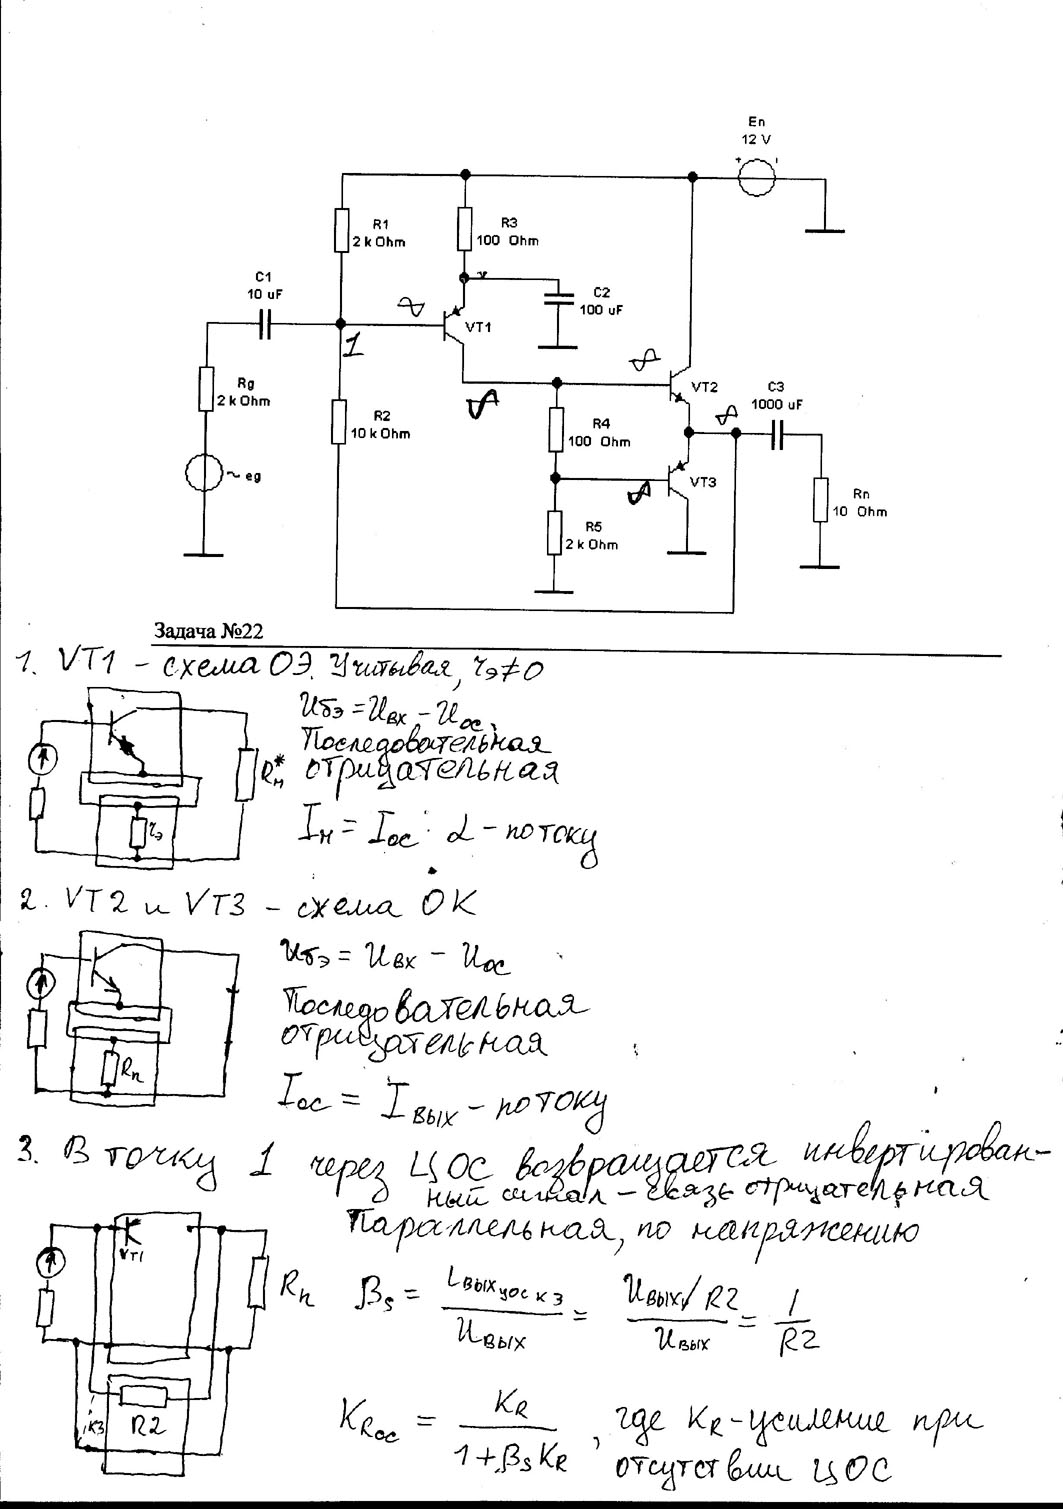 En
12 V
+ -
R1
2 k Ohm
R3
100 Ohm
C1
10 uF
C2
100 uF
VT1
1
Rg
2 k Ohm
R2
10 k Ohm
VT2
C3
1000 uF
R4
100 Ohm
~ eg
VT3
Rn
10 Ohm
R5
2 k Ohm
Задача №22
1. VT1 - схема ОЭ. Учитывая, rэ≠0
Uбэ = Uвх - Uос,
Последовательная
отрицательная
Rн*
rэ
Iн = Iос · α - по току
2. VT2 и VT3 - схема ОК
Uбэ = Uвх - Uос
Последовательная
отрицательная
Rn
Iос = Iвых - по току
3. В точку 1 через ЦОС возвращается инвертирован-
ный сигнал - связь отрицательная
Параллельная, по напряжению
VT1
Rn
βs = iвых цос кз / Uвых = Uвых / R2 / Uвых = 1 / R2
R2
кз
KRос = KR / 1 + βsKR , где KR - усиление при
отсутствии ЦОС